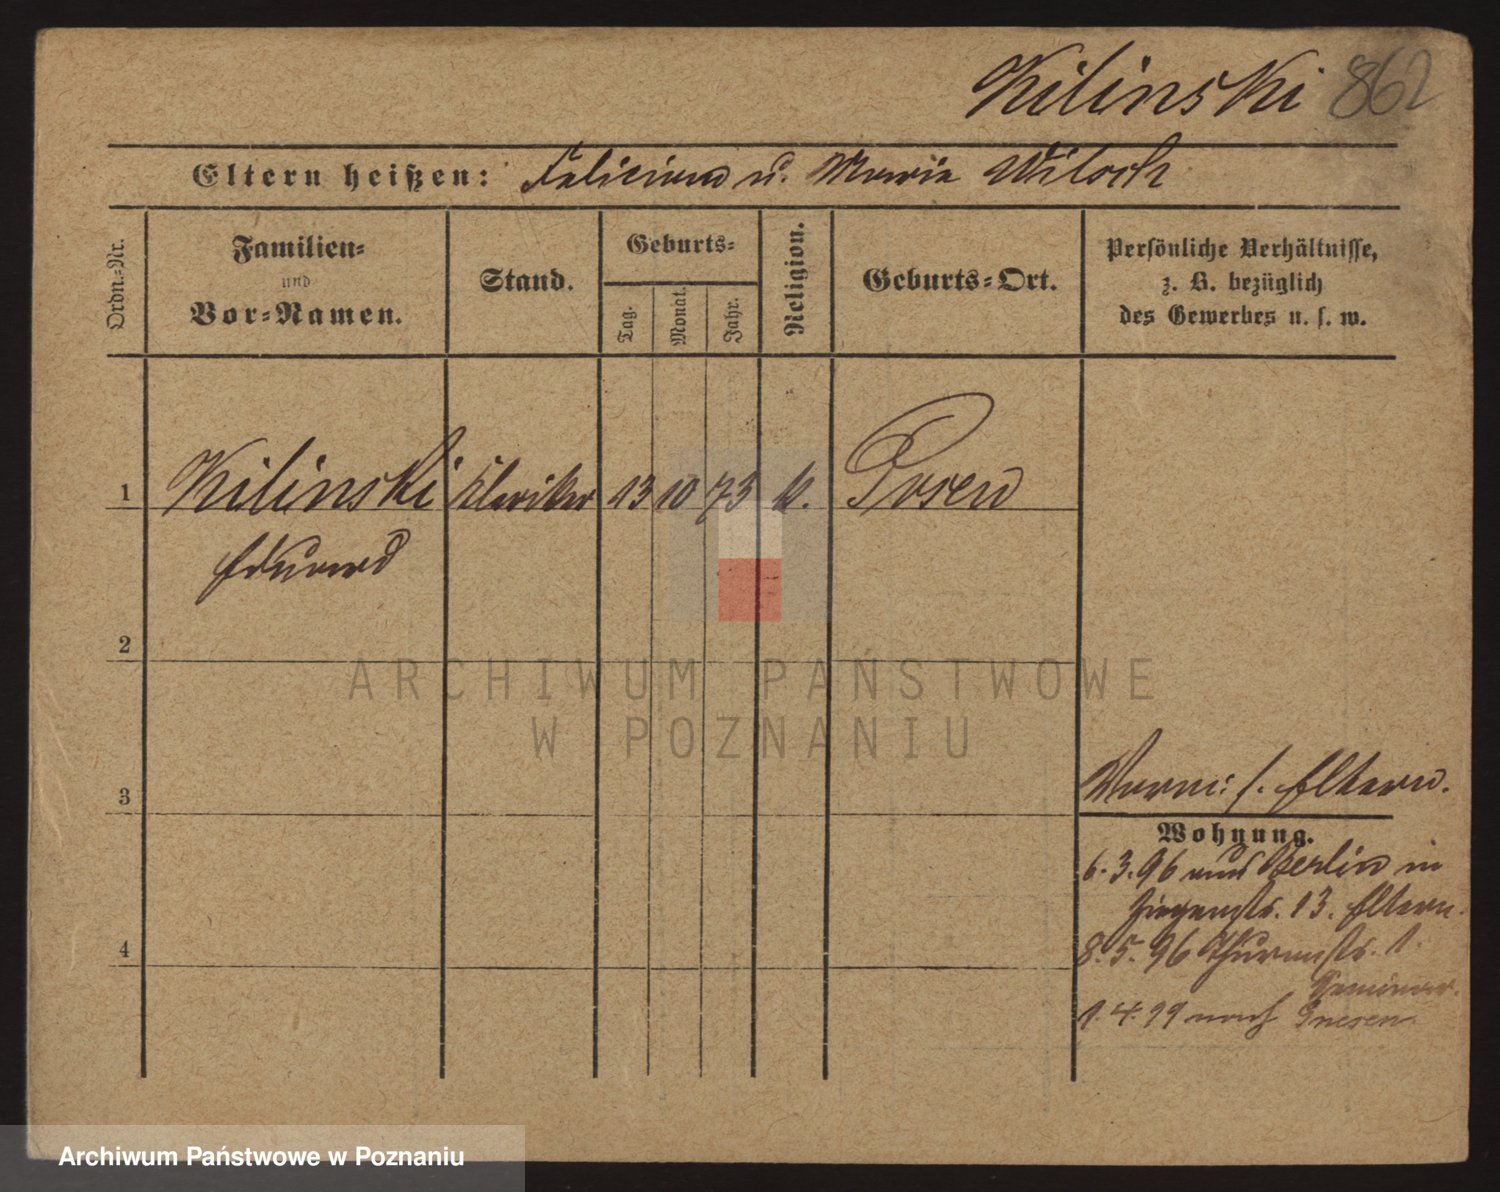 Kilinski 862
Eltern heißen: Felician u. Maria Wiloch
Ordn.-Nr.
Familien-
und
Vor-Namen.
Stand.
Geburts-
Tag.
Monat.
Jahr.
Religion.
Geburts-Ort.
Persönliche Verhältnisse,
z. B. bezüglich
des Gewerbes u. s. w.
1 Kilinski Kleriker 13 10 73 k. Posen
Eduard
2
3
4
s. Eltern.
Wohnung.
6.3.96 aus Berlin in
Ziegenstr. 13. Eltern.
8.5.96 Thurmstr. 1.
Seminar.
1.4.99 nach Gnesen
ARCHIWUM PAŃSTWOWE
W POZNANIU
Archiwum Państwowe w Poznaniu